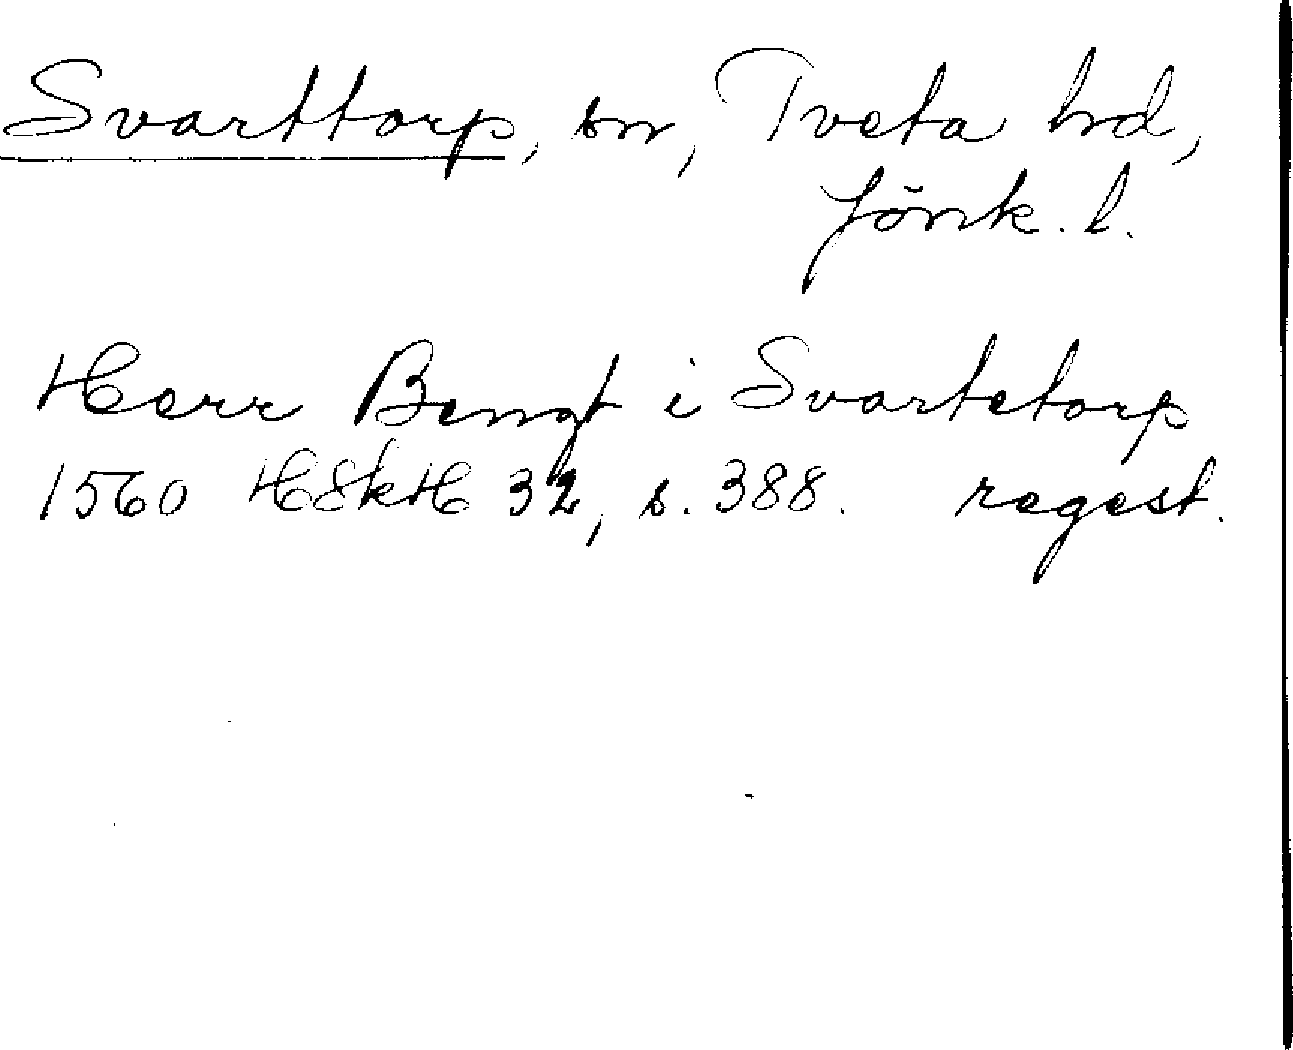 Svarttorp, sn, Tveta hd,
Jönk. l.
Herr Bengt i Svartetorp
1560 HSkH 32, s. 388. regest.